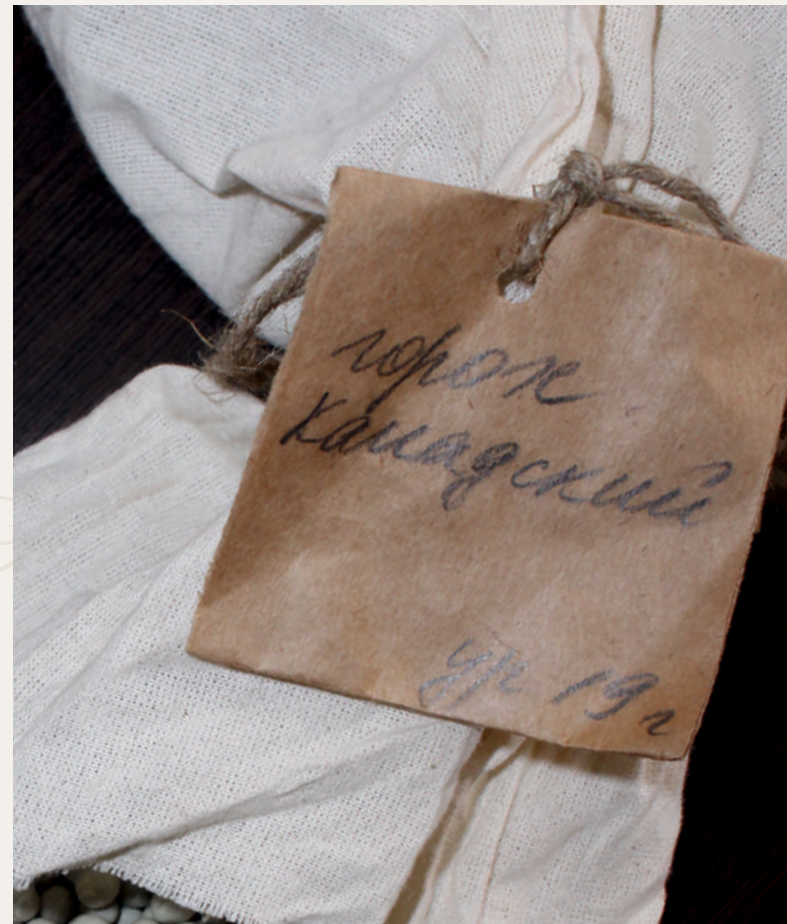 горох
Канадский
ур 19 г